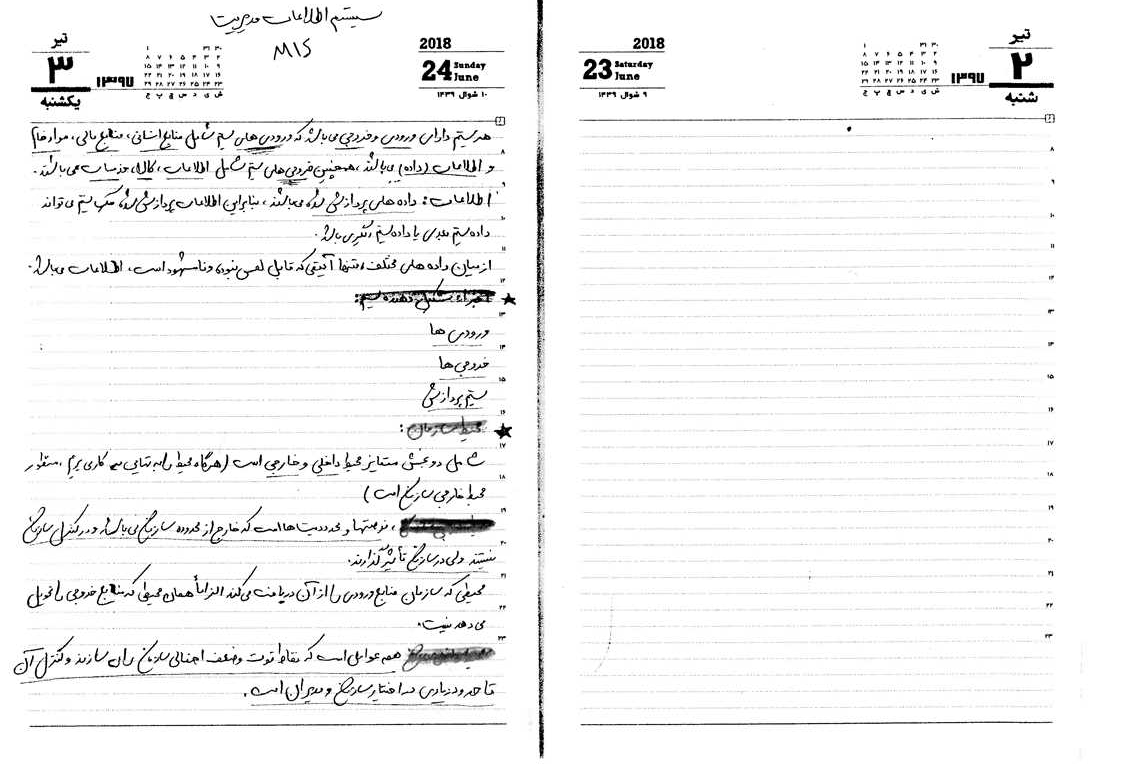 سیستم اطلاعات مدیریت
MIS
تیر
۳
یکشنبه
۱۳۹۷
2018
24 Sunday June
۱۰ شوال ۱۴۳۹
هر سیستم دارای ورودی و خروجی می باشد که ورودی های سیستم شامل منابع انسانی، منابع مالی، مواد خام
و اطلاعات (داده) می باشند، همچنین خروجی های سیستم شامل اطلاعات، کالا، خدمات می باشند.
اطلاعات: داده های پردازش شده می باشند، بنابراین اطلاعات پردازش شده یک سیستم می تواند
داده سیستم بعدی یا داده سیستم دیگری باشد.
از میان داده های مختلف، تنها آیتمی که قابل لمس نبوده و نامشهود است، اطلاعات می باشد.
اجزاء تشکیل دهنده سیستم:
ورودی ها
خروجی ها
سیستم پردازش
محیط سازمان:
شامل دو بخش متمایز محیط داخلی و خارجی است (هرگاه محیط را به تنهایی به کار می بریم، منظور
محیط خارجی سازمان است)
، فرصتها و محدودیت ها است که خارج از محدوده سازمان می باشند و در کنترل سازمان
نیستند ولی در سازمان تأثیر گذارند.
محیطی که سازمان منابع ورودی را از آن دریافت می کند الزاماً همان محیطی که منابع خروجی را تحویل
می دهد نیست.
همه عوامل است که نقاط قوت و ضعف اجمالی سازمان را می سازند و کنترل آن
تا حدود زیادی در اختیار سازمان و مدیران است.
2018
23 Saturday June
۹ شوال ۱۴۳۹
۱۳۹۷
تیر
۲
شنبه